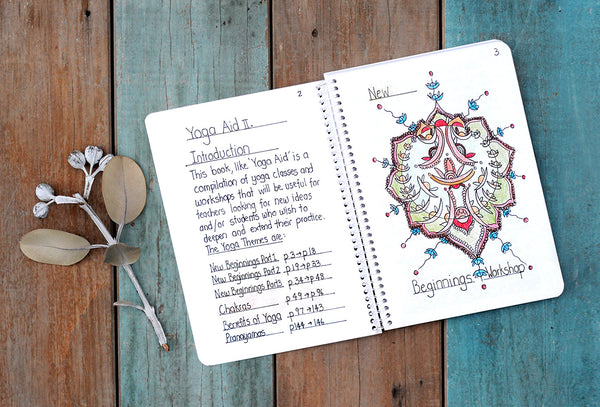 2
Yoga Aid II.
Introduction
This book, like 'Yoga Aid' is a
compilation of yoga classes and
workshops that will be useful for
teachers looking for new ideas
and/or students who wish to
deepen and extend their practice.
The Yoga Themes are:
New Beginnings Part 1 p.3→p18
New Beginnings Part 2 p.19→p.33
New Beginnings Part 3 p.34→p.48
Chakras p.49→p.96
Benefits of Yoga p.97→143
Pranayamas p144→146
3
New
Beginnings Workshop